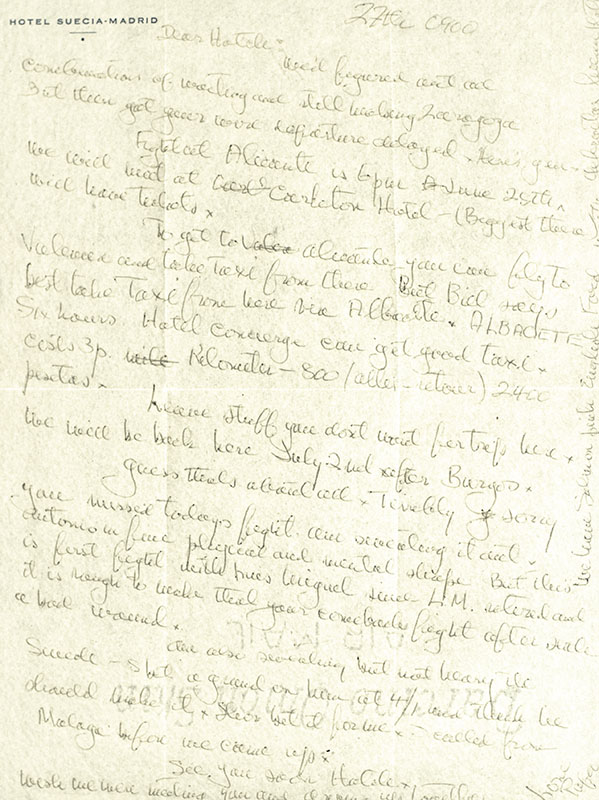 HOTEL SUECIA-MADRID
27th 0900
Dear Hotch:
We'd figured out all
combinations of meeting and still making Zaragoza
But then got your wire departure delayed x Here's gen-
Fight at Alicante is 6 pm June 28th x
We will meet at Carleton Hotel - (Biggest there
will have tickets x
To get to Alicante you can fly to
Valencia and take taxi from there But Bill says
best take Taxi from here via Albacete x ALBACETE
Six hours. Hotel concierge can get good taxi x
costs 3 p. Kilometer - 800 (aller - retour) 2400
pesetas x
Leave stuff you dont want for trip here x
We will be back here July 2nd after Burgos x
Guess thats about all x Terribly sorry
you missed todays fight. Am sweating it out x
Antonio in fine physical and mental shape But this
is first fight with Luis Miguel since L.M. retired and
it is rough to make that your comeback fight after such
a bad wound x
Am also sweating but not heavy
Suede - bet a grand on him at 4/1 and think he
should make it x bet it for me - called from
Malaga before we came up x
See you soon Hotch x
Wish we were meeting you and